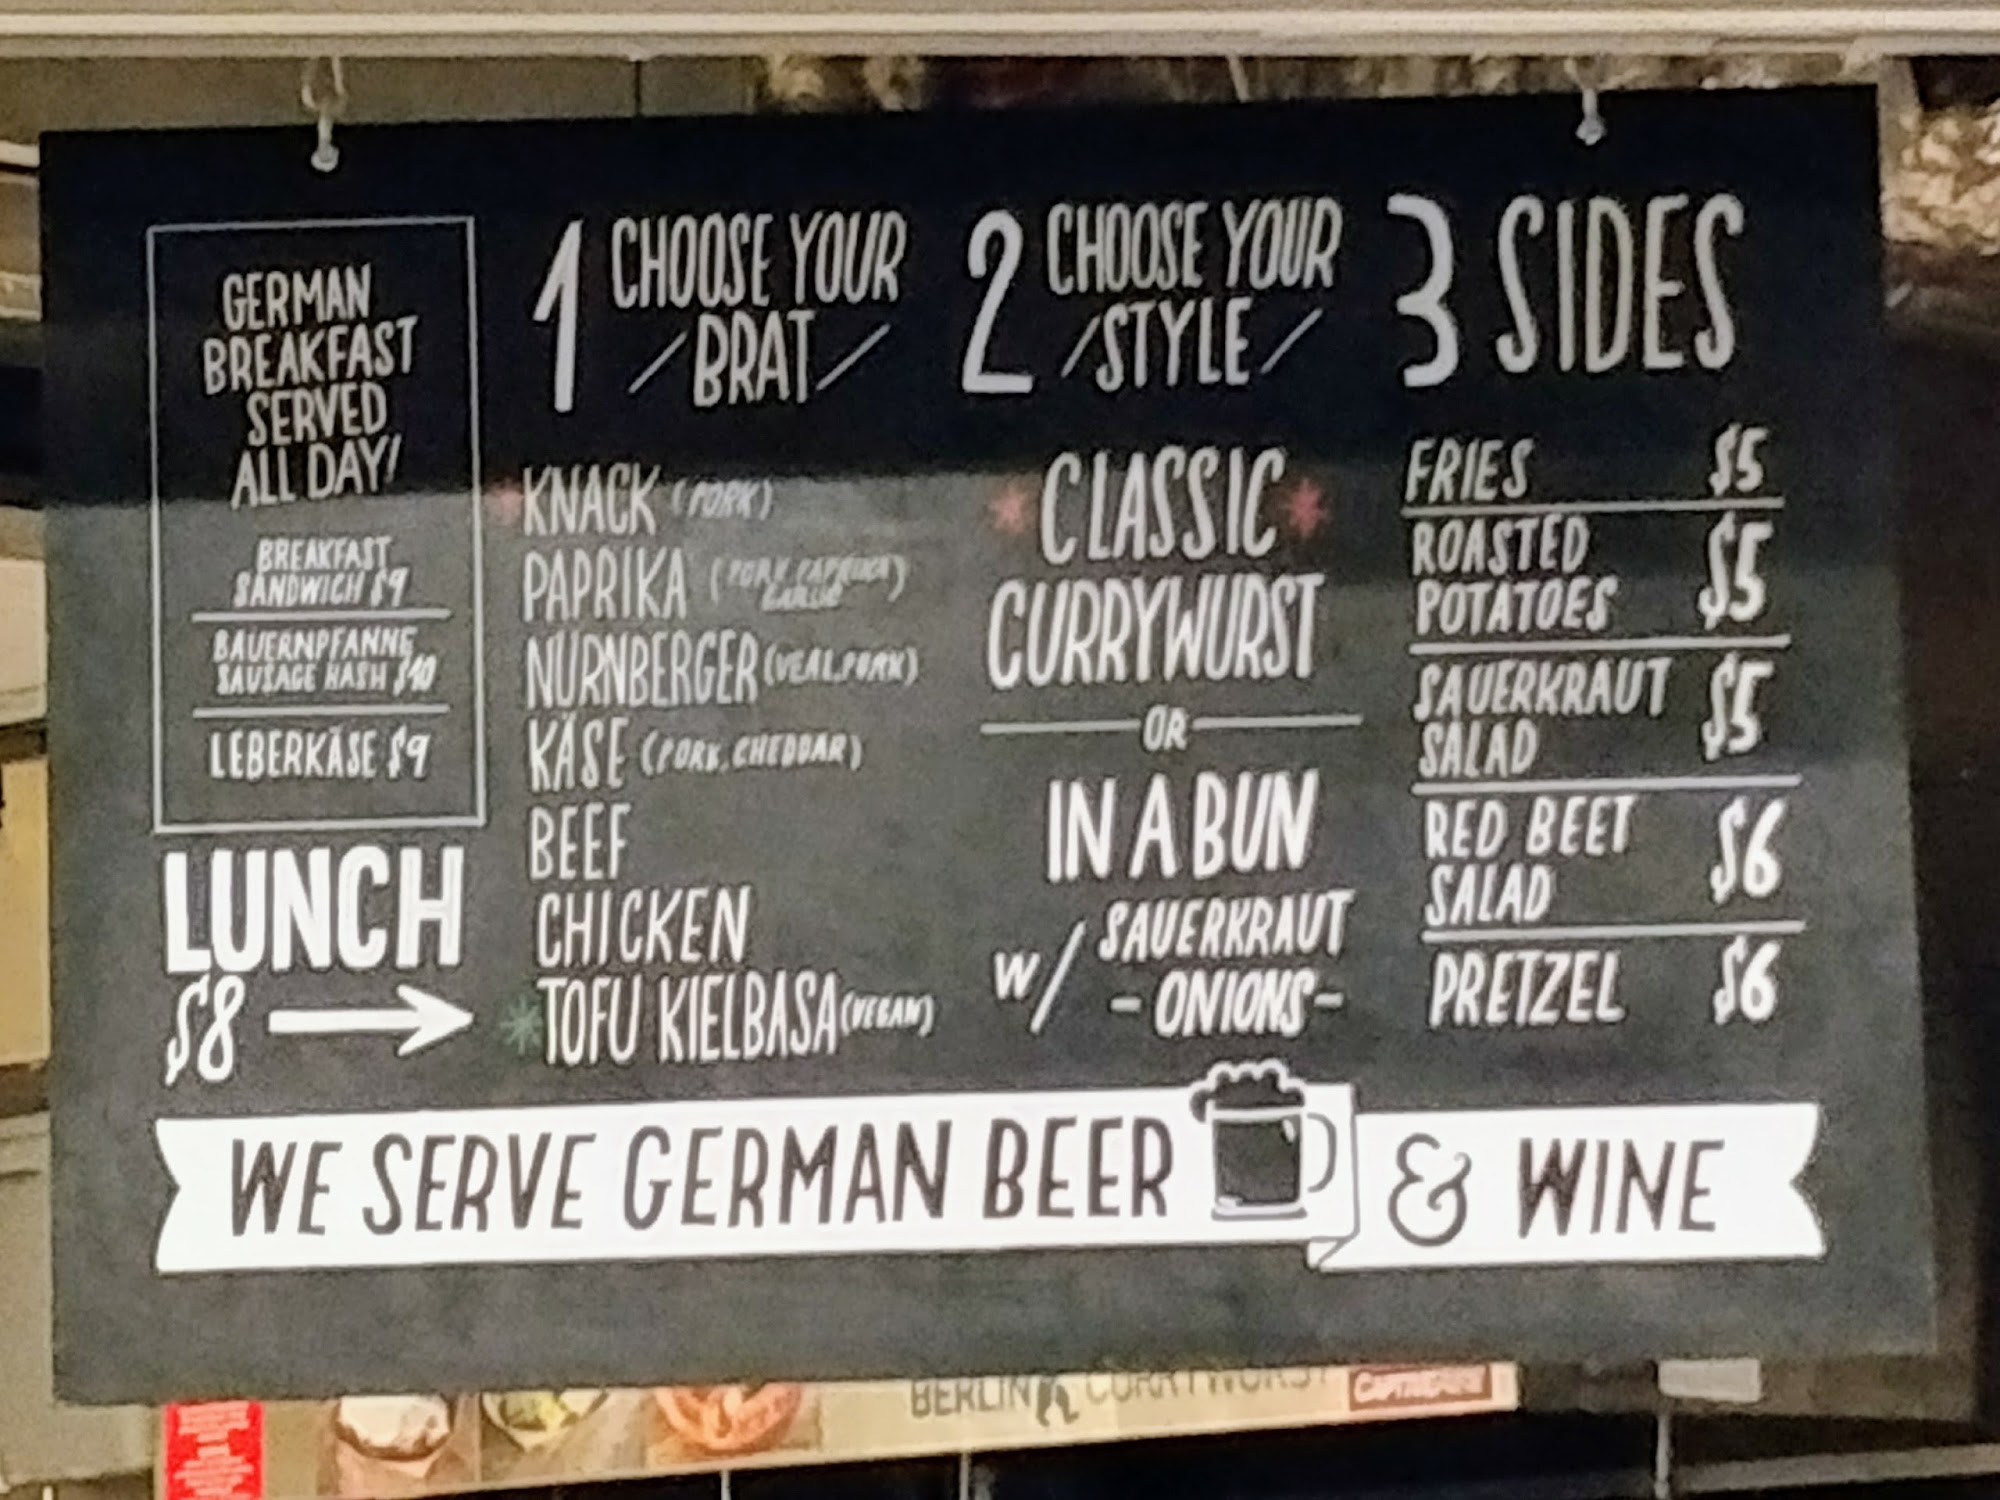 GERMAN
BREAKFAST
SERVED
ALL DAY!
BREAKFAST
SANDWICH $9
BAUERNPFANNE
SAUSAGE HASH $10
LEBERKÄSE $9
LUNCH
$8
1 CHOOSE YOUR
BRAT
KNACK (PORK)
PAPRIKA (PORK, PAPRIKA
GARLIC)
NÜRNBERGER (VEAL, PORK)
KÄSE (PORK, CHEDDAR)
BEEF
CHICKEN
TOFU KIELBASA (VEGAN)
2 CHOOSE YOUR
STYLE
CLASSIC
CURRYWURST
OR
IN A BUN
W/ SAUERKRAUT
- ONIONS -
3 SIDES
FRIES $5
ROASTED
POTATOES $5
SAUERKRAUT
SALAD $5
RED BEET
SALAD $6
PRETZEL $6
WE SERVE GERMAN BEER & WINE
BERLIN CURRYWURST